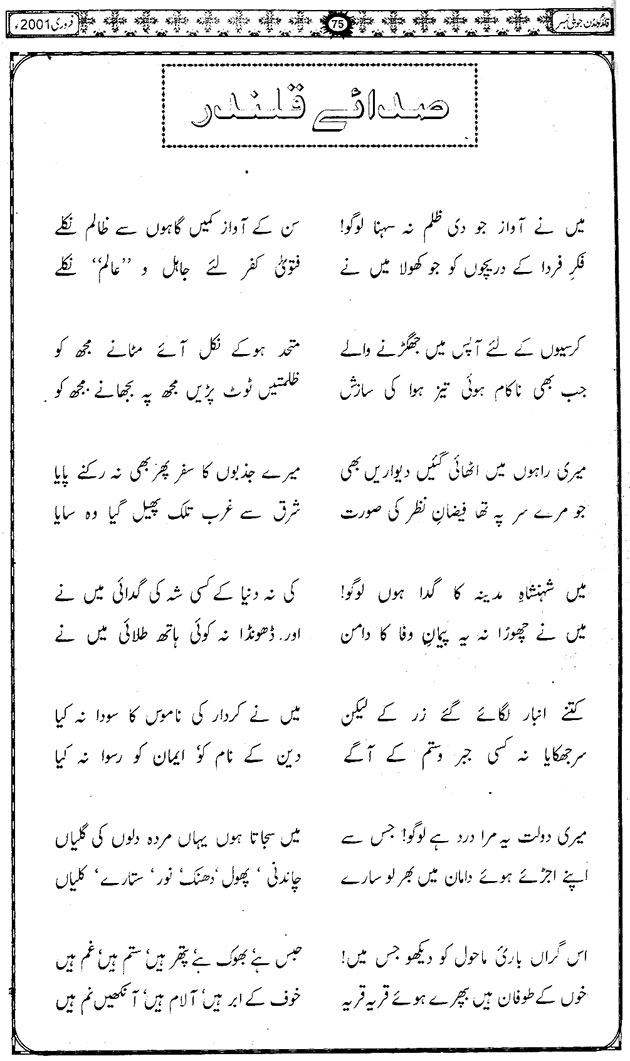 فلاح لندن جوبلی نمبر 75 فروری 2001ء
صدائے قلندر
میں نے آواز جو دی ظلم نہ سہنا لوگو! سن کے آواز کمیں گاہوں سے ظالم نکلے
فکرِ فردا کے دریچوں کو جو کھولا میں نے فتویٰ کفر لئے جاہل و ”عالم“ نکلے
کرسیوں کے لئے آپس میں جھگڑنے والے متحد ہوکے نکل آئے مٹانے مجھ کو
جب بھی ناکام ہوئی تیز ہوا کی سازش ظلمتیں ٹوٹ پڑیں مجھ پہ بجھانے مجھ کو
میری راہوں میں اٹھائی گئیں دیواریں بھی میرے جذبوں کا سفر پھر بھی نہ رکنے پایا
جو مرے سر پہ تھا فیضانِ نظر کی صورت شرق سے غرب تلک پھیل گیا وہ سایا
میں شہنشاہِ مدینہ کا گدا ہوں لوگو! کی نہ دنیا کے کسی شہ کی گدائی میں نے
میں نے چھوڑا نہ یہ پیمانِ وفا کا دامن اور ڈھونڈا نہ کوئی ہاتھ طلائی میں نے
کتنے انبار لگائے گئے زر کے لیکن میں نے کردار کی ناموس کا سودا نہ کیا
سرجھکایا نہ کسی جبر وستم کے آگے دین کے نام کو‘ ایمان کو رسوا نہ کیا
میری دولت یہ مرا درد ہے لوگو! جس سے میں سجاتا ہوں یہاں مردہ دلوں کی گلیاں
اپنے اجڑئے ہوئے دامان میں بھر لو سارے چاندنی ‘ پھول‘ دھنک‘ نور‘ ستارے‘ کلیاں
اس گراں بارئ ماحول کو دیکھو جس میں! حبس ہے‘ بھوک ہے‘ پتھر ہیں‘ ستم ہیں‘ غم ہیں
خوں کے طوفان ہیں بپھرے ہوئے قریہ قریہ خوف کے ابر ہیں‘ آلام ہیں‘ آنکھیں نم ہیں